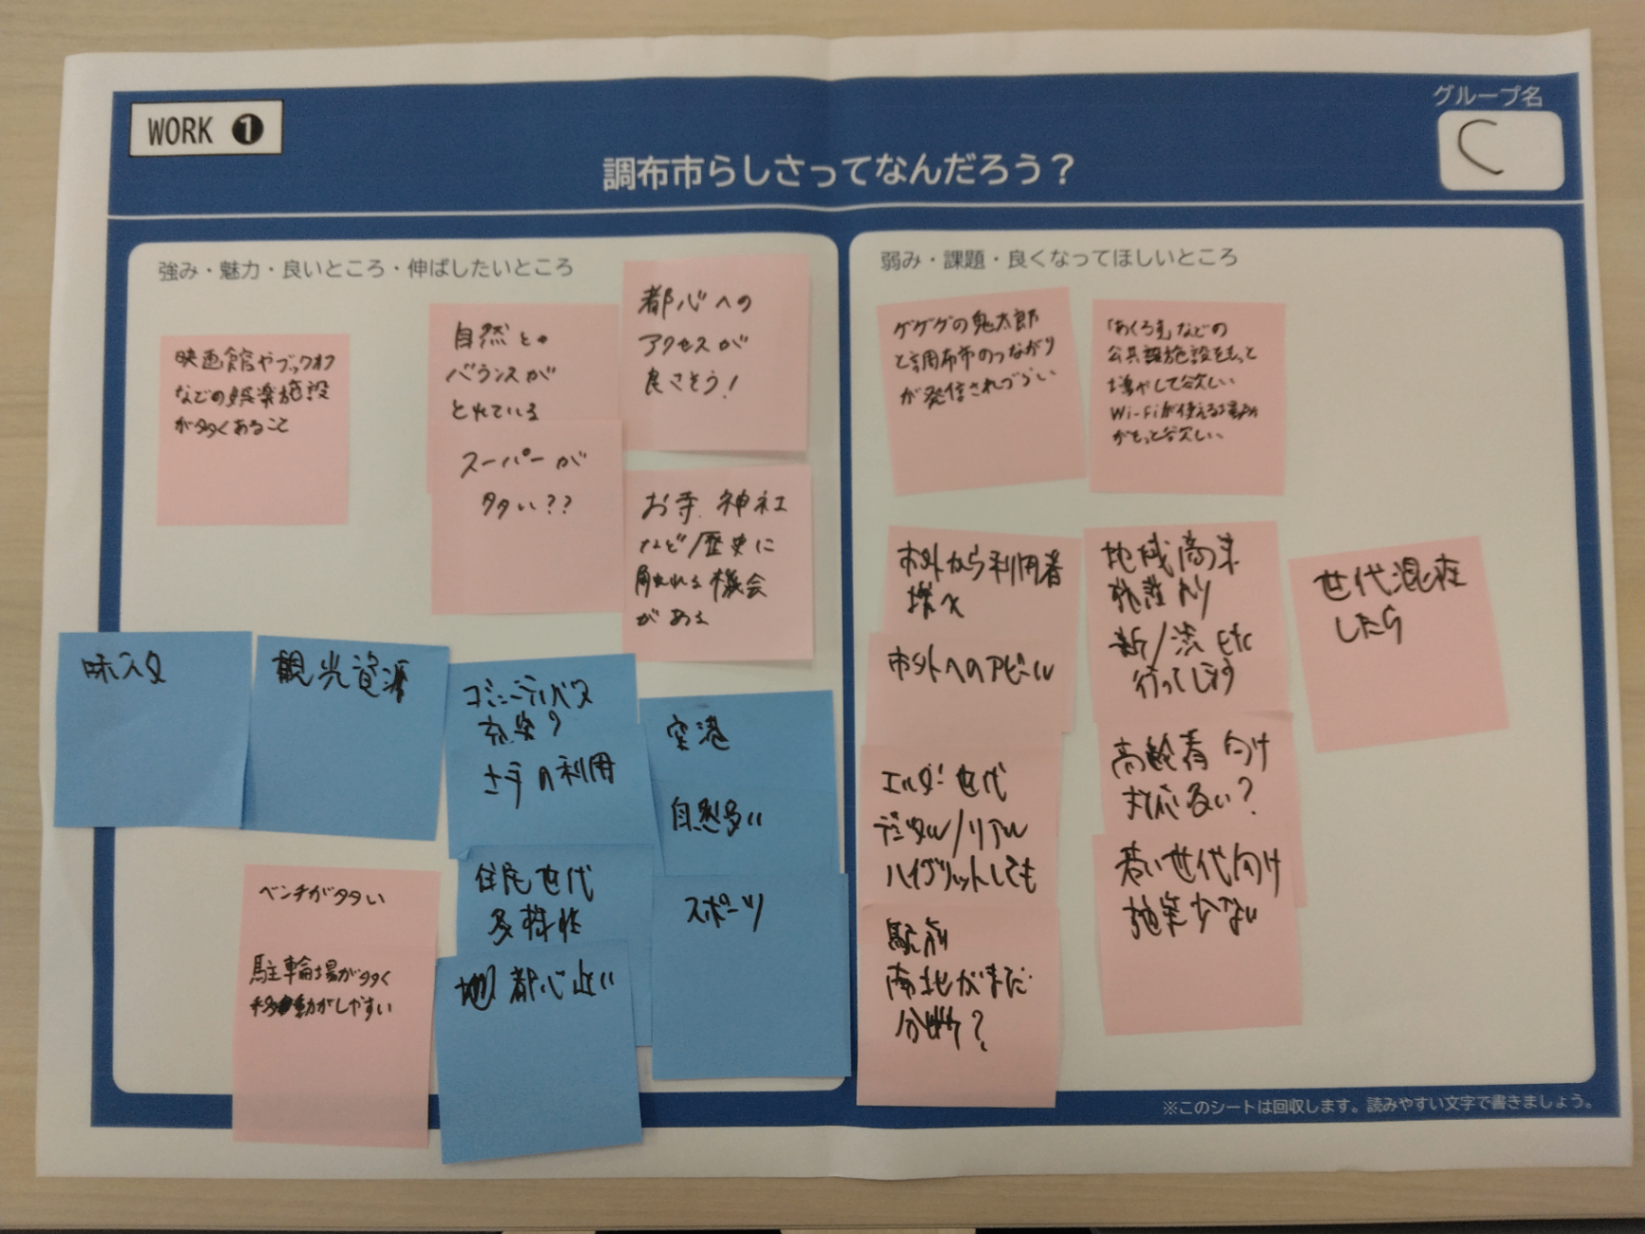 WORK ❶
調布市らしさってなんだろう？
グループ名
C
強み・魅力・良いところ・伸ばしたいところ
映画館やブックオフ
などの娯楽施設
が多くあること
自然との
バランスが
とれている
スーパーが
多い??
都心への
アクセスが
良さそう!
お寺、神社
など/歴史に
触れれる機会
がある
味スタ
観光資源
コミュニティバス
充実?
の利用
住民世代
多様性
都心近い
空港
自然多い
スポーツ
ベンチが多い
駐輪場が多く
移動がしやすい
弱み・課題・良くなってほしいところ
ゲゲゲの鬼太郎
と調布市のつながり
が発信されづらい
「あくろす」などの
公共施設をもっと
増やして欲しい
Wi-Fiが使える場所
がもっと欲しい
市外から利用者
増へ
市外へのアピール
エルダー世代
デジタル/リアル
ハイブリットしても
駅前
南北がまだ
分断?
地域商業
新/渋 etc
行ってします
高齢者向け
対応多い?
若い世代向け
施策少ない
世代混在
したら
※このシートは回収します。読みやすい文字で書きましょう。